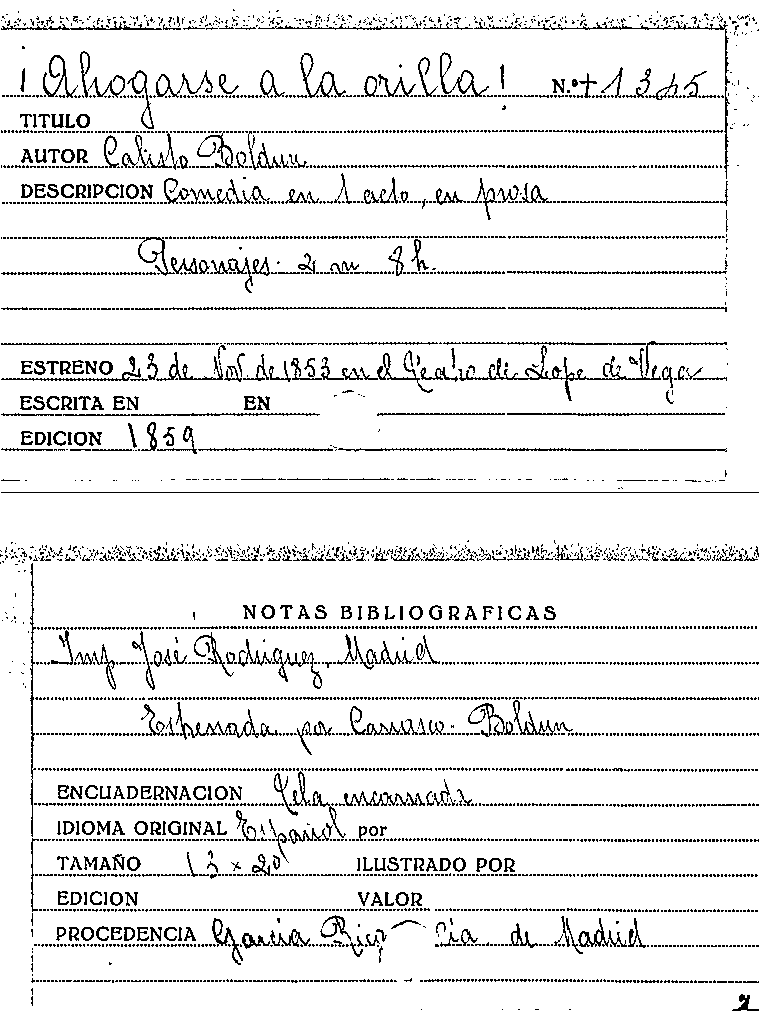 ¡Ahogarse a la orilla! N.º+1345
TITULO
AUTOR Calisto Boldun
DESCRIPCION Comedia en 1 acto, en prosa
Personajes- 2 m 8 h.
ESTRENO 23 de Nov. de 1853 en el Teatro de Lope de Vega
ESCRITA EN EN
EDICION 1859
NOTAS BIBLIOGRAFICAS
Imp José Rodriguez, Madrid
Estrenada por Carrasco- Boldun
ENCUADERNACION Tela encarnada
IDIOMA ORIGINAL Español por
TAMAÑO 13 x 20 ILUSTRADO POR
EDICION VALOR
PROCEDENCIA Garcia Rico Cia de Madrid